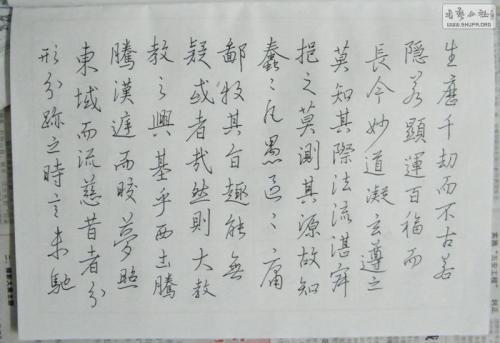 生歷千劫而不古若
隱若顯運百福而
長今妙道凝玄遵之
莫知其際法流湛寂
挹之莫測其源故知
蠢〻凡愚區〻庸
鄙投其旨趣能無
疑或者哉然則大教
教之興基乎西土騰
騰漢庭而皎夢照
東域而流慈昔者分
形分跡之時言未馳
WWW.SHUFA.ORG